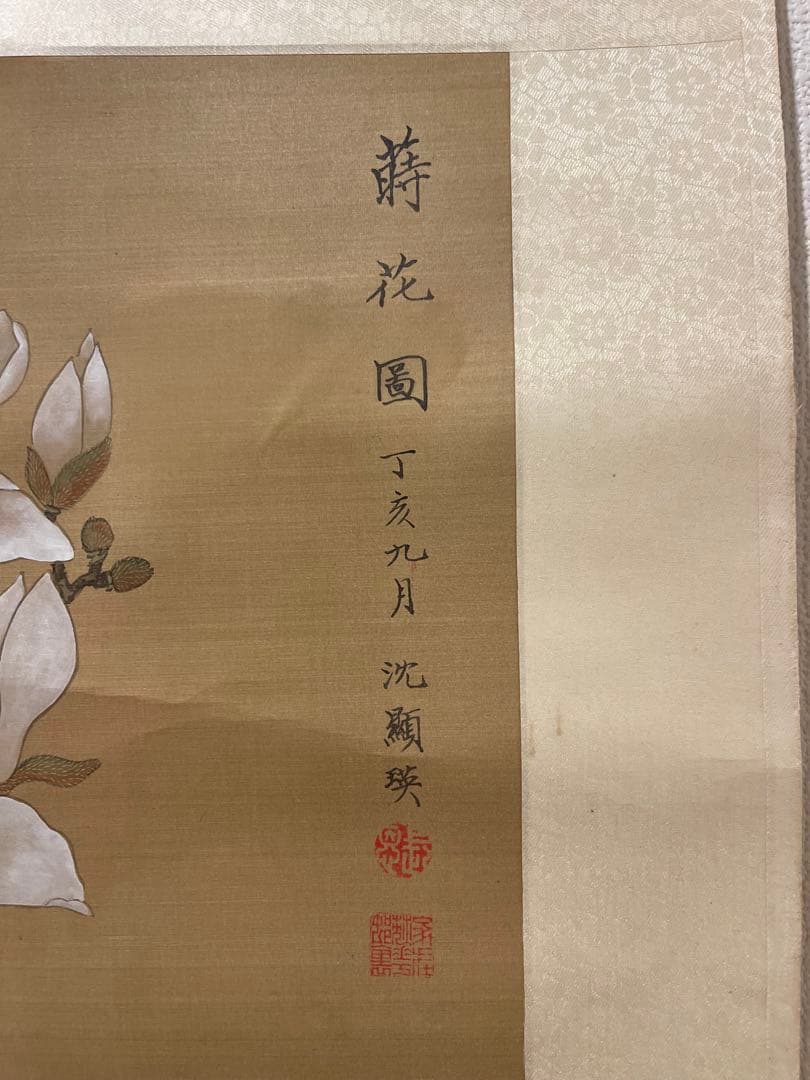 蒔花圖 丁亥九月 沈顯瑛